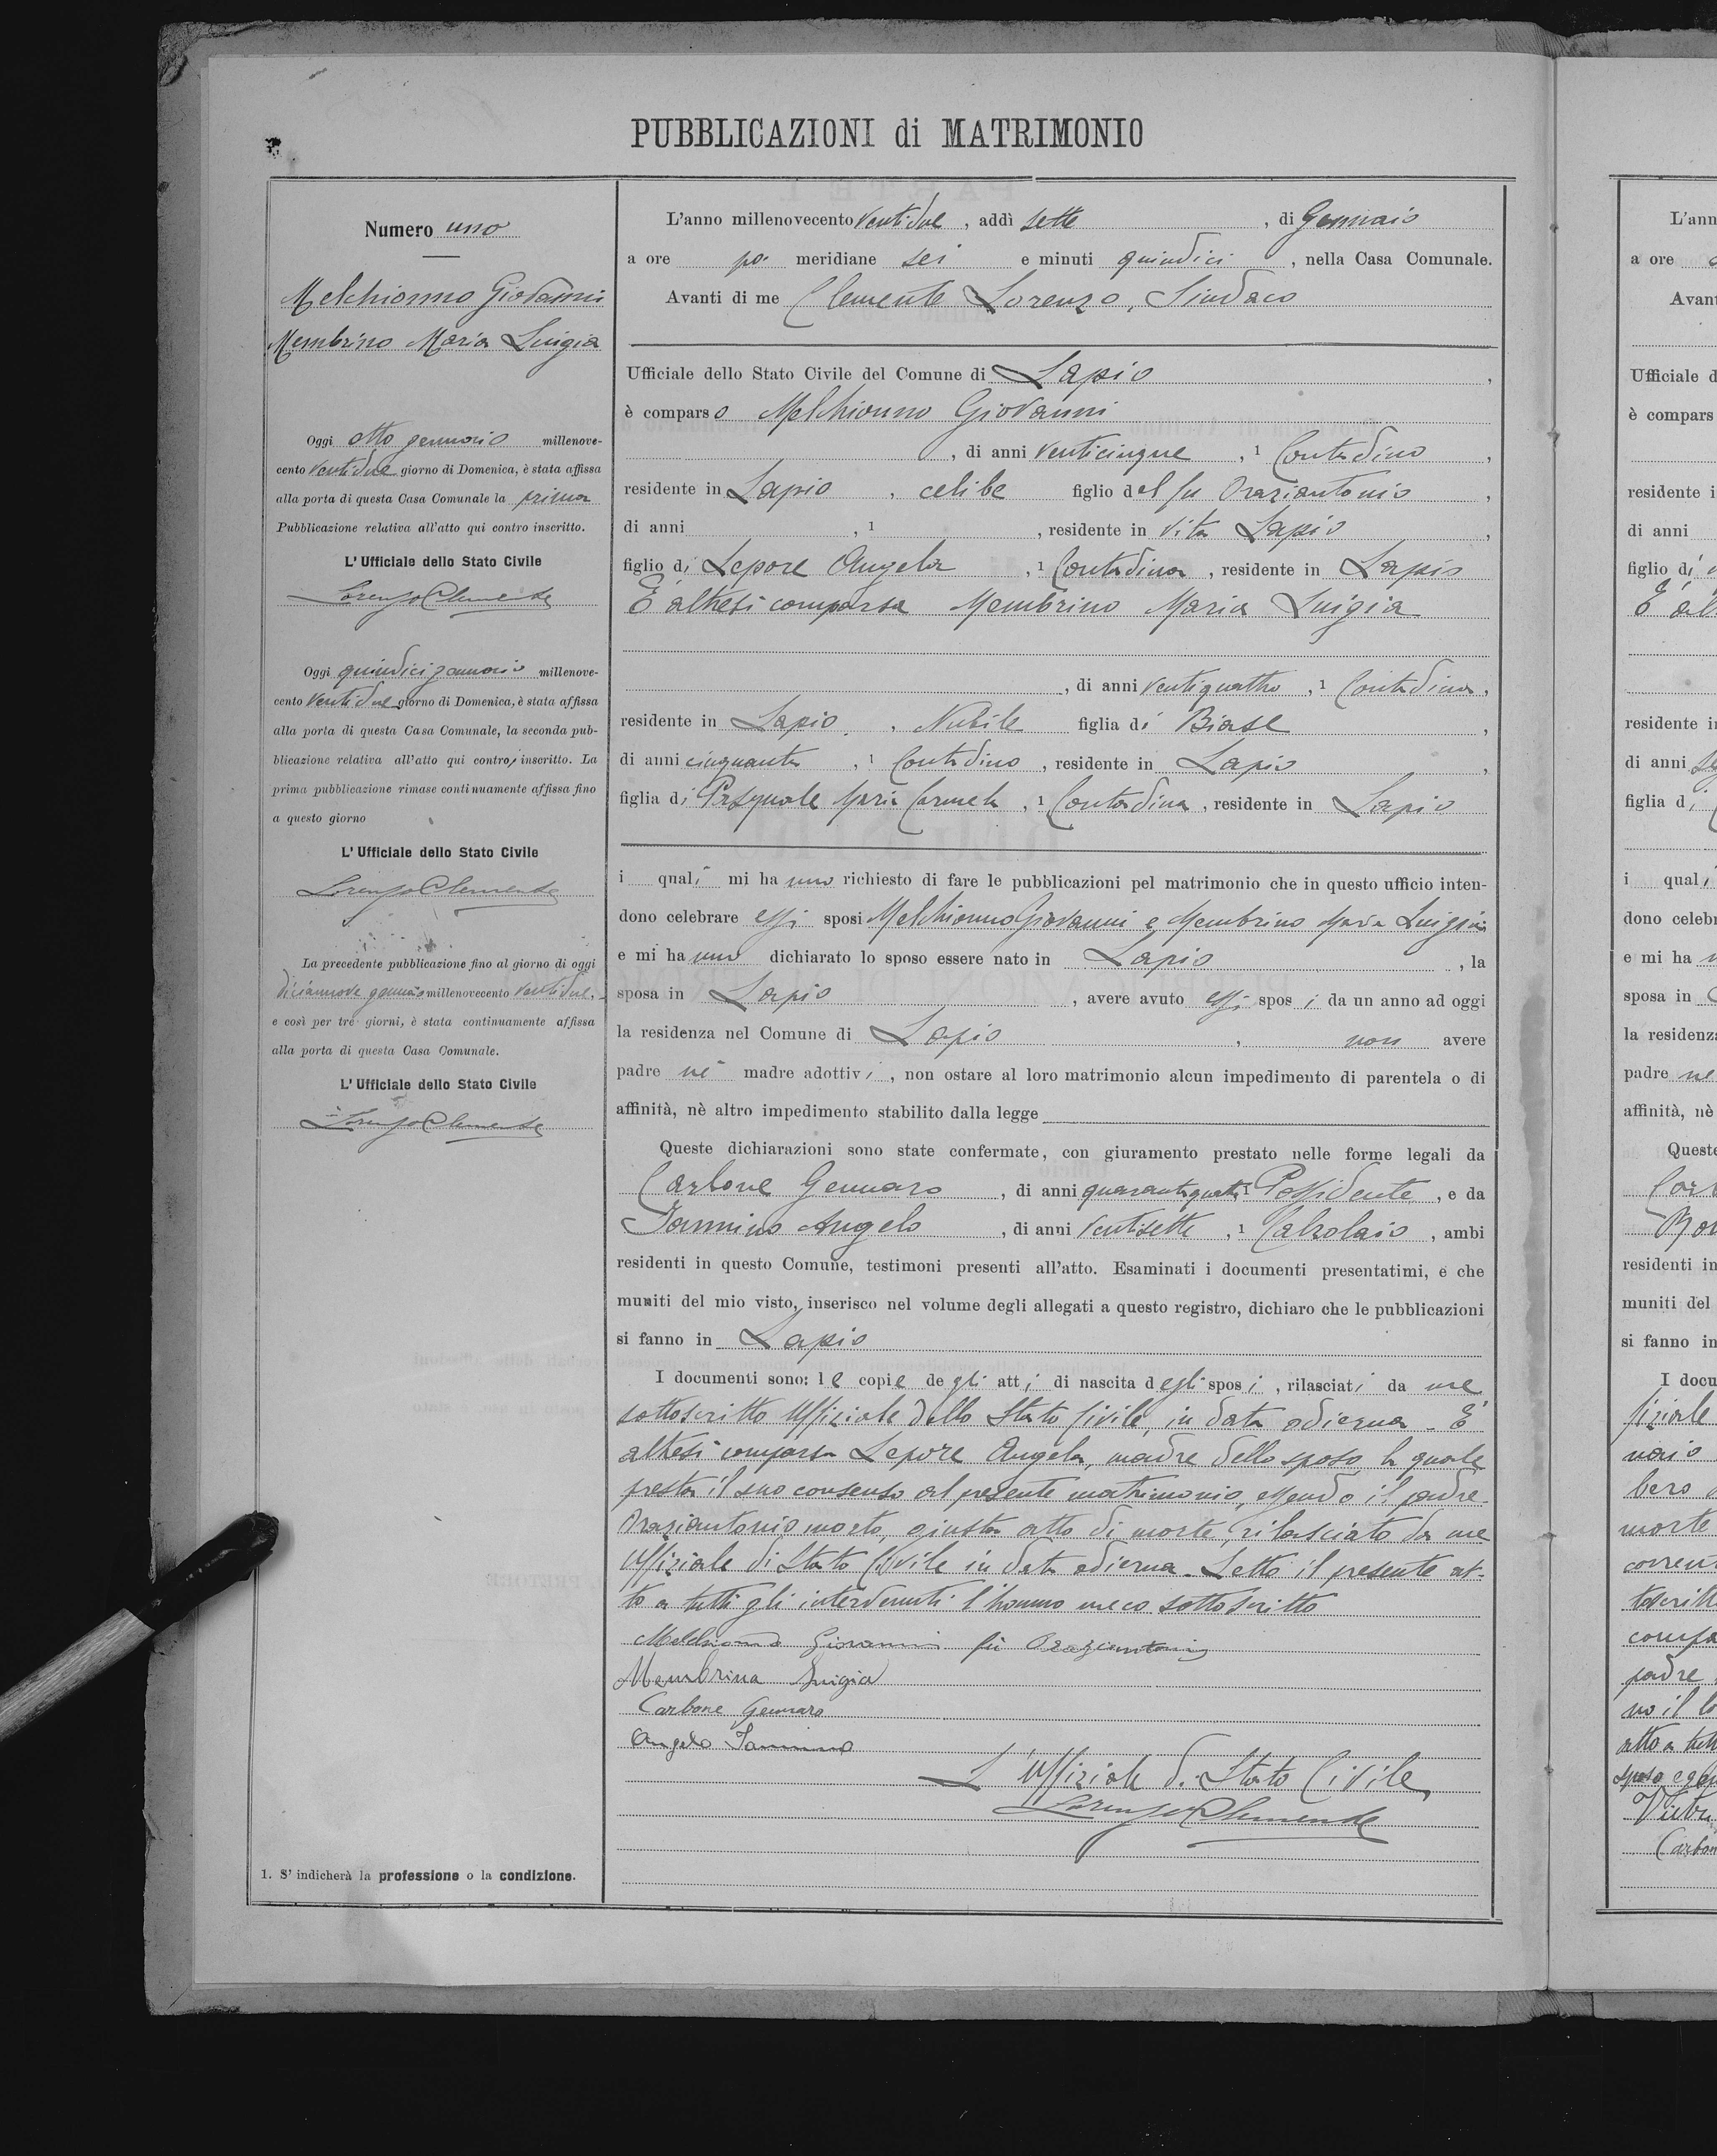 PUBBLICAZIONI di MATRIMONIO
Numero uno
Melchionno Giovanni
Membrino Maria Luigia
Oggi otto gennaio millenove-
cento ventidue giorno di Domenica, è stata affissa
alla porta di questa Casa Comunale la prima
Pubblicazione relativa all'atto qui contro inscritto.
L'Ufficiale dello Stato Civile
Lorenzo Clemente
Oggi quindici gennaio millenove-
cento ventidue giorno di Domenica, è stata affissa
alla porta di questa Casa Comunale, la seconda pub-
blicazione relativa all'atto qui contro, inscritto. La
prima pubblicazione rimase continuamente affissa fino
a questo giorno
L'Ufficiale dello Stato Civile
Lorenzo Clemente
La precedente pubblicazione fino al giorno di oggi
diciannove gennaio millenovecento ventidue,
e così per tre giorni, è stata continuamente affissa
alla porta di questa Casa Comunale.
L'Ufficiale dello Stato Civile
Lorenzo Clemente
1. S'indicherà la professione o la condizione.
L'anno millenovecento ventidue, addì sette, di Gennaio
a ore po meridiane sei e minuti quindici, nella Casa Comunale.
Avanti di me Clemente Lorenzo, Sindaco
Ufficiale dello Stato Civile del Comune di Lapio,
è comparso Melchionno Giovanni
, di anni venticinque, 1 Contadino,
residente in Lapio, celibe figlio del fu Oraziantonio,
di anni , 1 , residente in vita Lapio,
figlio di Lepore Angela, 1 Contadina, residente in Lapio
È altresì comparsa Membrino Maria Luigia
, di anni ventiquattro, 1 Contadina,
residente in Lapio, Nubile figlia di Biase,
di anni cinquanta, 1 Contadino, residente in Lapio,
figlia di Pasquale Maria Carmela, 1 Contadina, residente in Lapio
i quali mi hanno richiesto di fare le pubblicazioni pel matrimonio che in questo ufficio inten-
dono celebrare essi sposi Melchionno Giovanni e Membrino Maria Luigia
e mi hanno dichiarato lo sposo essere nato in Lapio, la
sposa in Lapio, avere avuto essi sposi da un anno ad oggi
la residenza nel Comune di Lapio, non avere
padre nè madre adottivi, non ostare al loro matrimonio alcun impedimento di parentela o di
affinità, nè altro impedimento stabilito dalla legge
Queste dichiarazioni sono state confermate, con giuramento prestato nelle forme legali da
Carbone Gennaro, di anni quarantaquattro 1 Possidente, e da
Iannino Angelo, di anni ventisette, 1 Calzolaio, ambi
residenti in questo Comune, testimoni presenti all'atto. Esaminati i documenti presentatimi, e che
muniti del mio visto, inserisco nel volume degli allegati a questo registro, dichiaro che le pubblicazioni
si fanno in Lapio
I documenti sono: le copie degli atti di nascita degli sposi, rilasciati da me
sottoscritto Uffiziale dello Stato Civile, in data odierna. È
altresì comparsa Lepore Angela, madre dello sposo la quale
presta il suo consenso al presente matrimonio, essendo il padre
Oraziantonio morto, giusta atto di morte, rilasciato da me
Uffiziale di Stato Civile in data odierna. Letto il presente at-
to a tutti gli intervenuti l'hanno meco sottoscritto
Melchionno Giovanni fu Oraziantonio
Membrina Luigia
Carbone Gennaro
Angelo Iannino
L'Uffiziale di Stato Civile
Lorenzo Clemente
L'ann
a ore
Avant
Ufficiale d
è compars
residente i
di anni
figlio di
È al
residente in
di anni
figlia di
i quali
dono celebr
e mi ha
sposa in
la residenza
padre ne
affinità, nè
Queste
residenti in
muniti del
si fanno in
I docu
fiziale
naio
bero
morte
corrent
toscritt
compa
padre
no il
atto a tutt